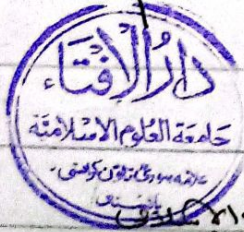 دارُالإفتاء
جامعة العلوم الاسلامیّة
علامہ بنوری ٹاؤن کراچی۔
پاکستان